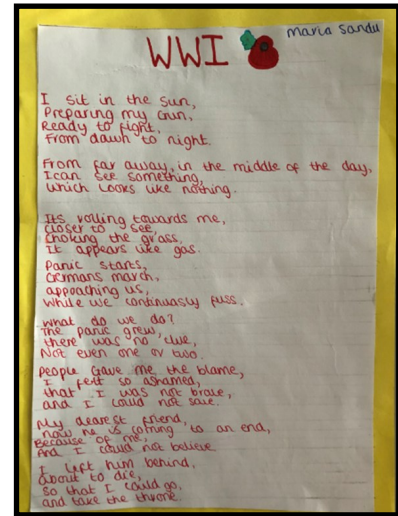 Maria Sandu
WWI
I sit in the sun,
Preparing my Gun,
Ready to fight,
From dawn to night.
From far away, in the middle of the day,
I can see something,
which looks like nothing.
Its rolling towards me,
closer to see,
Choking the grass,
It appears like gas.
Panic starts,
Germans march,
appoaching us,
While we continuasly fuss.
What do we do?
The panic grew,
there was no clue,
Not even one or two.
People Gave me the blame,
I felt so ashamed,
that I was not brave,
and I could not save.
My dearest friend,
now he is coming to an end,
Because of me,
And I could not believe.
I left him behind,
about to die,
so that I could go,
and take the throne.